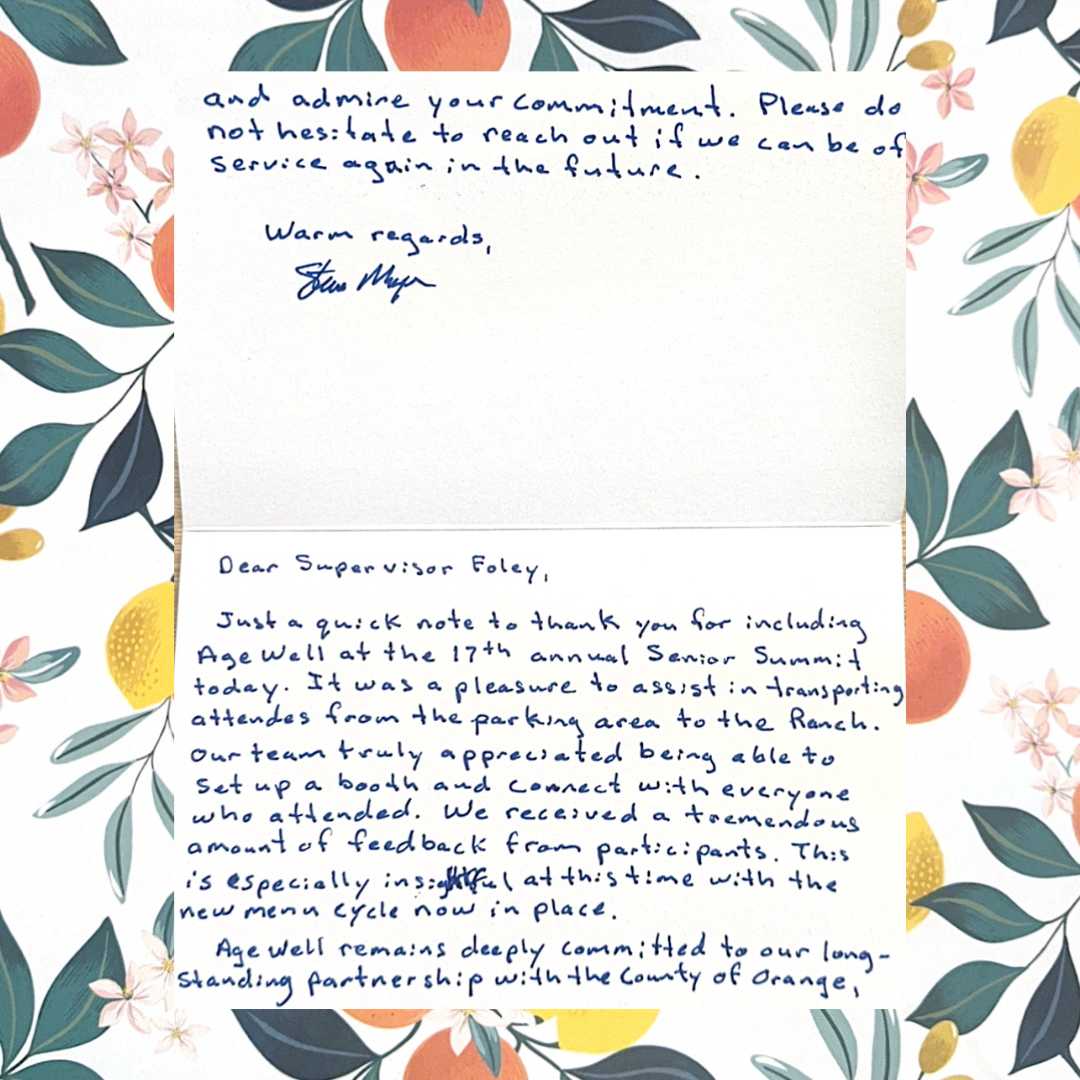 Dear Supervisor Foley,
Just a quick note to thank you for including
Age Well at the 17th annual Senior Summit
today. It was a pleasure to assist in transporting
attendes from the parking area to the Ranch.
Our team truly appreciated being able to
set up a booth and connect with everyone
who attended. We received a tremendous
amount of feedback from participants. This
is especially insightful at this time with the
new menu cycle now in place.
Age Well remains deeply committed to our long-
standing partnership with the County of Orange,
and admire your commitment. Please do
not hesitate to reach out if we can be of
service again in the future.
Warm regards,